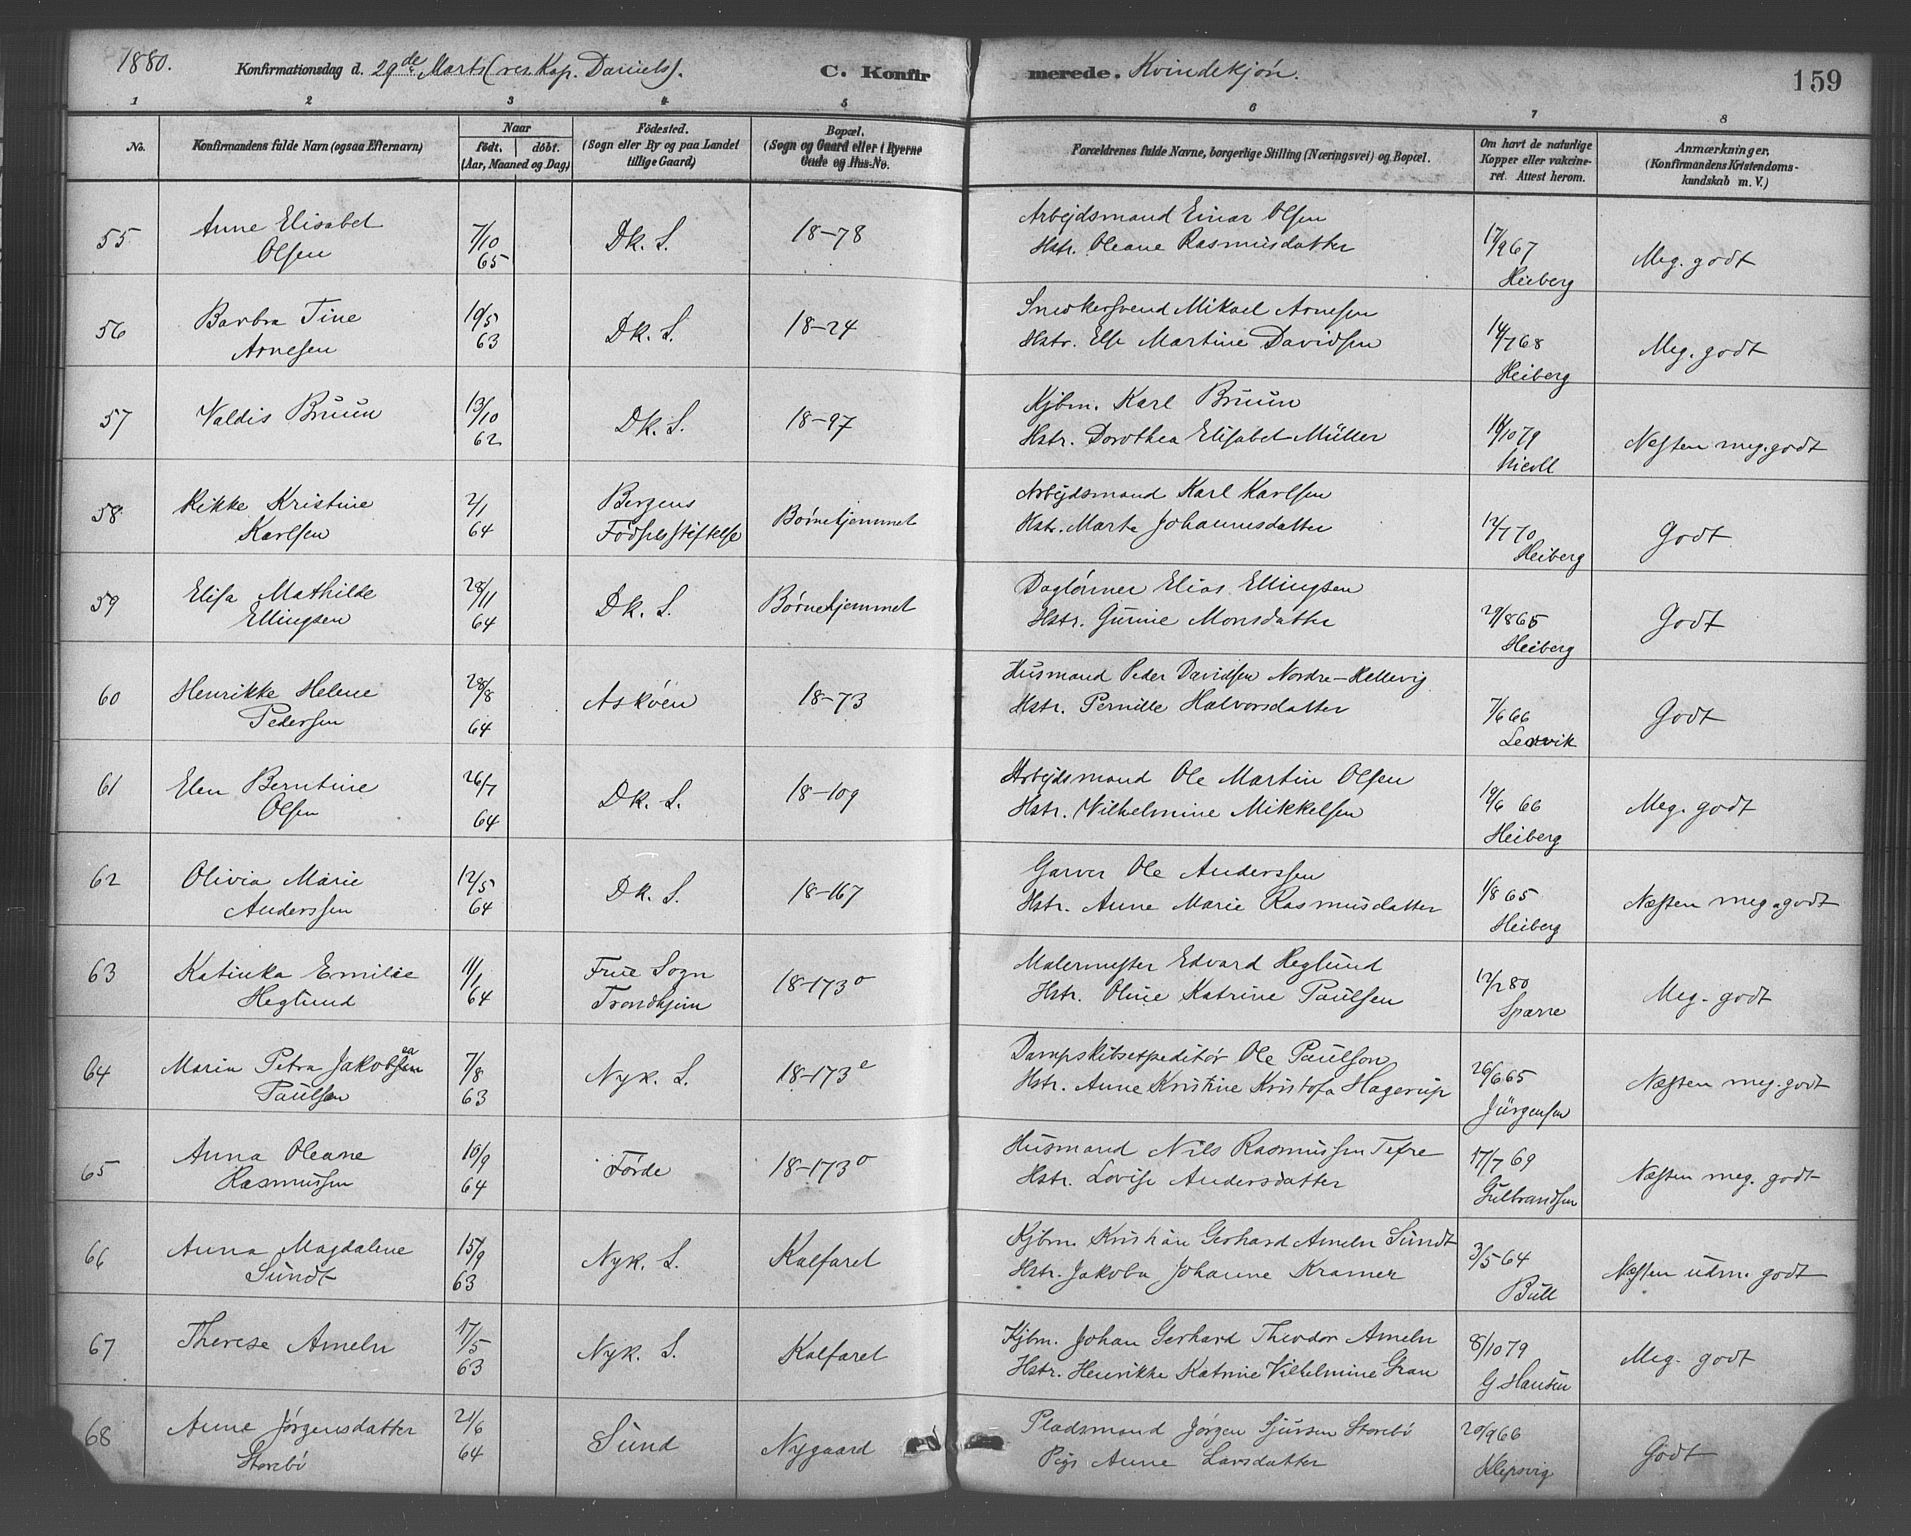 1880. Konfirmationsdag d. 29de Marts (res. Kap. Daniels). C. Konfirmerede. Kvindekjøn. 159
1 2 3 4 5 6 7 8
No. Konfirmandens fulde Navn (ogsaa Efternavn) Naar født. døbt. (Aar, Maaned og Dag) Fødested. (Sogn eller By og paa Landet tillige Gaard) Bopæl. (Sogn og Gaard eller i Byerne Gade og Hus-No. Forældrenes fulde Navne, borgerlige Stilling (Næringsvei) og Bopæl. Om havt de naturlige Kopper eller vakcineret. Attest herom. Anmærkninger, (Konfirmandens Kristendomskundskab m. V.)
55 Anne Elisabet Olsen 7/10 65 Dk. S. 18-78 Arbejdsmand Einar Olsen
Hstr. Oleane Rasmusdatter 17/9 67 Heiberg Meg. godt
56 Barbra Tine Arnesen 19/5 63 Dk. S. 18-24 Snedkersvend Mikael Arnesen
Hstr. Else Martine Davidsen 14/7 68 Heiberg Meg. godt
57 Valdis Bruun 13/10 62 Dk. S. 18-97 Kjbm. Karl Bruun
Hstr. Dorothea Elisabet Müller 16/10 79 Nicoll Næsten meg. godt
58 Rikke Kristine Karlsen 2/1 64 Bergens Fødselsstiftelse Børnehjemmet Arbejdsmand Karl Karlsen
Hstr. Marta Johannesdatter 12/7 70 Heiberg Godt
59 Elisa Mathilde Ellingsen 28/11 64 Dk. S. Børnehjemmet Daglønner Elias Ellingsen
Hstr. Gurine Monsdatter 29/8 65 Heiberg Godt
60 Henrikke Helene Pedersen 28/8 64 Askøen 18-73 Husmand Peder Davidsen Nordre-Hellevig
Hstr. Pernille Halvorsdatter 7/6 66 Godt
61 Elen Berntine Olsen 26/7 64 Dk. S. 18-109 Arbejdsmand Ole Martin Olsen
Hstr. Vilhelmine Mikkelsen 19/6 66 Heiberg Meg. godt
62 Olivia Marie Anderssen 12/5 64 Dk. S. 18-167 Garver Ole Anderssen
Hstr. Anne Marie Rasmusdatter 1/8 65 Heiberg Næsten meg. godt
63 Katinka Emilie Heglund 11/1 64 Frue Sogn Trondhjem 18-173o Malermester Edvard Heglund
Hstr. Oline Katrine Paulsen 12/2 80 Sparre Meg. godt
64 Maria Petra Jakobea Paulsen 7/8 63 Nyk. S. 18-173e Dampskibsexpeditør Ole Paulson
Hstr. Anne Kristine Kristofa Hagerup 26/6 65 Jürgensen Næsten meg. godt
65 Anna Oleane Rasmussen 10/9 64 Førde 18-173o Husmand Nils Rasmussen Tefre
Hstr. Lovise Andersdatter 17/7 69 Gulbrandsen Næsten meg. godt
66 Anna Magdalene Sundt 15/9 63 Nyk. S. Kalfaret Kjbm. Kristian Gerhard Ameln Sundt
Hstr. Jakoba Johanne Kramer 3/5 64 Bull Næsten udm. godt
67 Therese Ameln 17/5 63 Nyk. S. Kalfaret Kjbm. Johan Gerhard Theodor Ameln
Hstr. Henrikke Katrine Vilhelmine Gran 8/10 79 G Hansen Meg. godt
68 Anne Jørgensdatter Storebø 21/6 64 Sund Nygaard Pladsmand Jørgen Sjursen Storebø
Pige Anne Larsdatter 20/9 66 Klepsvig Godt